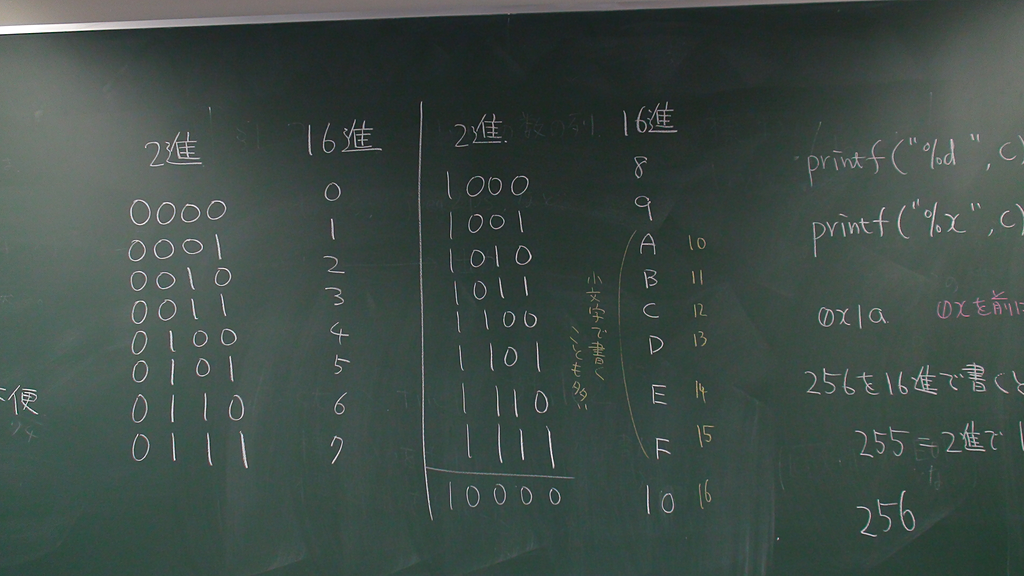 2進 16進
0000 0
0001 1
0010 2
0011 3
0100 4
0101 5
0110 6
0111 7
2進. 16進
1000 8
1001 9
1010 A 10
1011 B 11
1100 C 12
1101 D 13
1110 E 14
1111 F 15
10000 10 16
小文字で書く
ことも多い
printf("%d", c)
printf("%x", c)
0x1a 0xを前に
256を16進で書くと
255=2進で1
256
便